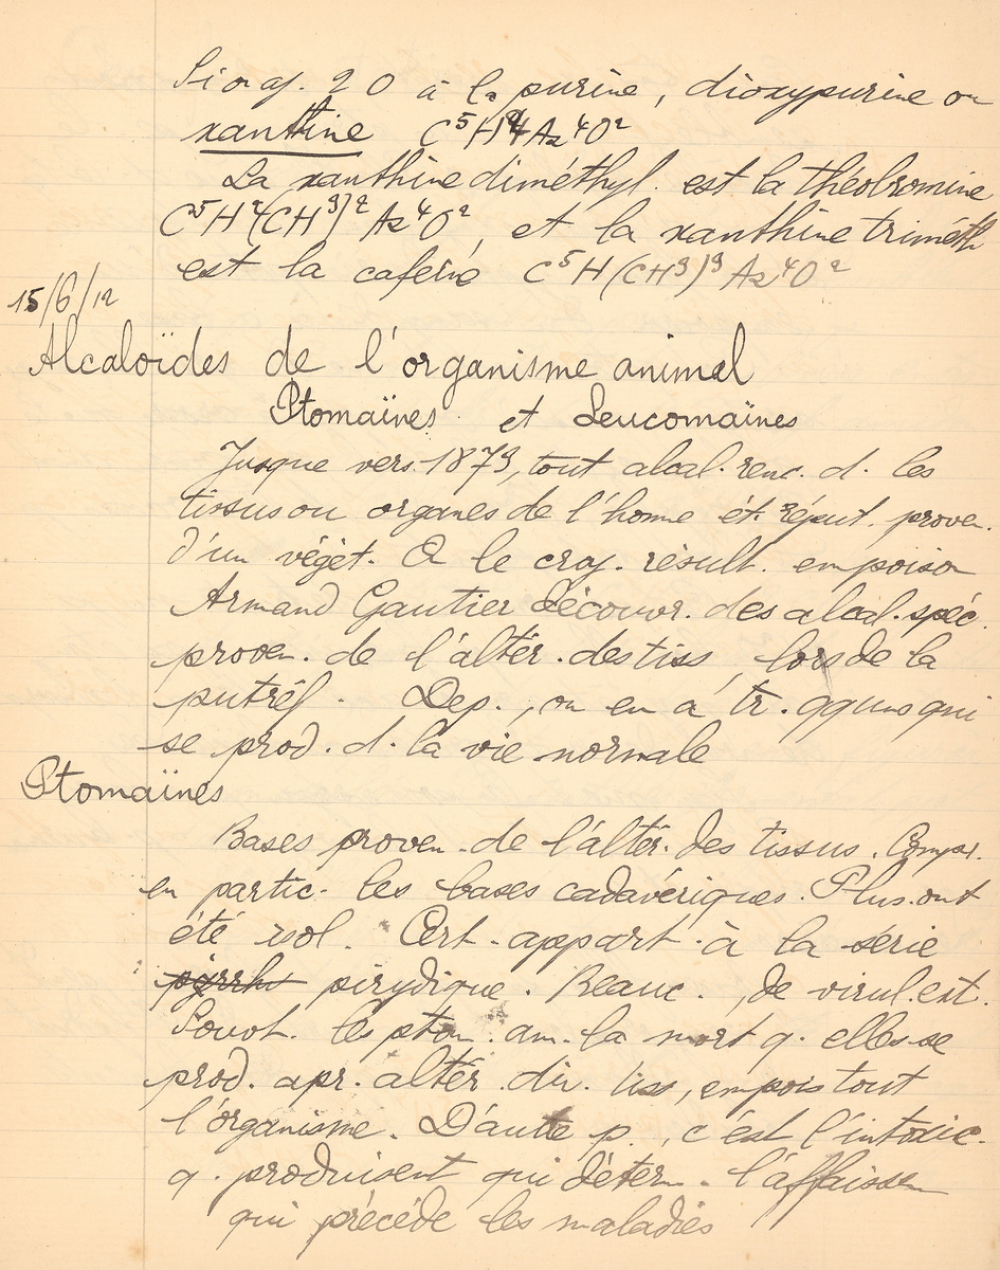 Si on aj. 2 O à la purine, dioxypurine ou
xanthine C⁵H⁴Az⁴O²
La xanthine diméthyl. est la théobromine
C⁵H²(CH³)²Az⁴O², et la xanthine triméth
est la caféine C⁵H(CH³)³Az⁴O²
15/6/12
Alcaloïdes de l'organisme animal
Ptomaïnes et Leucomaïnes
Jusque vers 1873, tout alcal. renc. d. les
tissus ou organes de l'homme ét. réput. proven.
d'un végét. O le croy. result. empoison
Armand Gautier découvr. des alcal. spéc.
proven. de l'altér. des tiss, lors de la
putréf. Dep., on en a tr. qquns qui
se prod. d. la vie normale
Ptomaïnes
Bases proven. de l'altér. des tissus. Compr.
en partic. les bases cadavériques. Plus. ont
été isol. Cert. appart. à la série
pirydique. Beauc. de virul. ext.
Souvt. les ptom. am. la mort q. elles se
prod. apr. altér. div. tiss, empois tout
l'organisme. D'autre p., c'est l'intoxic.
q. produisent qui déterm. l'affaissem
qui précède les maladies